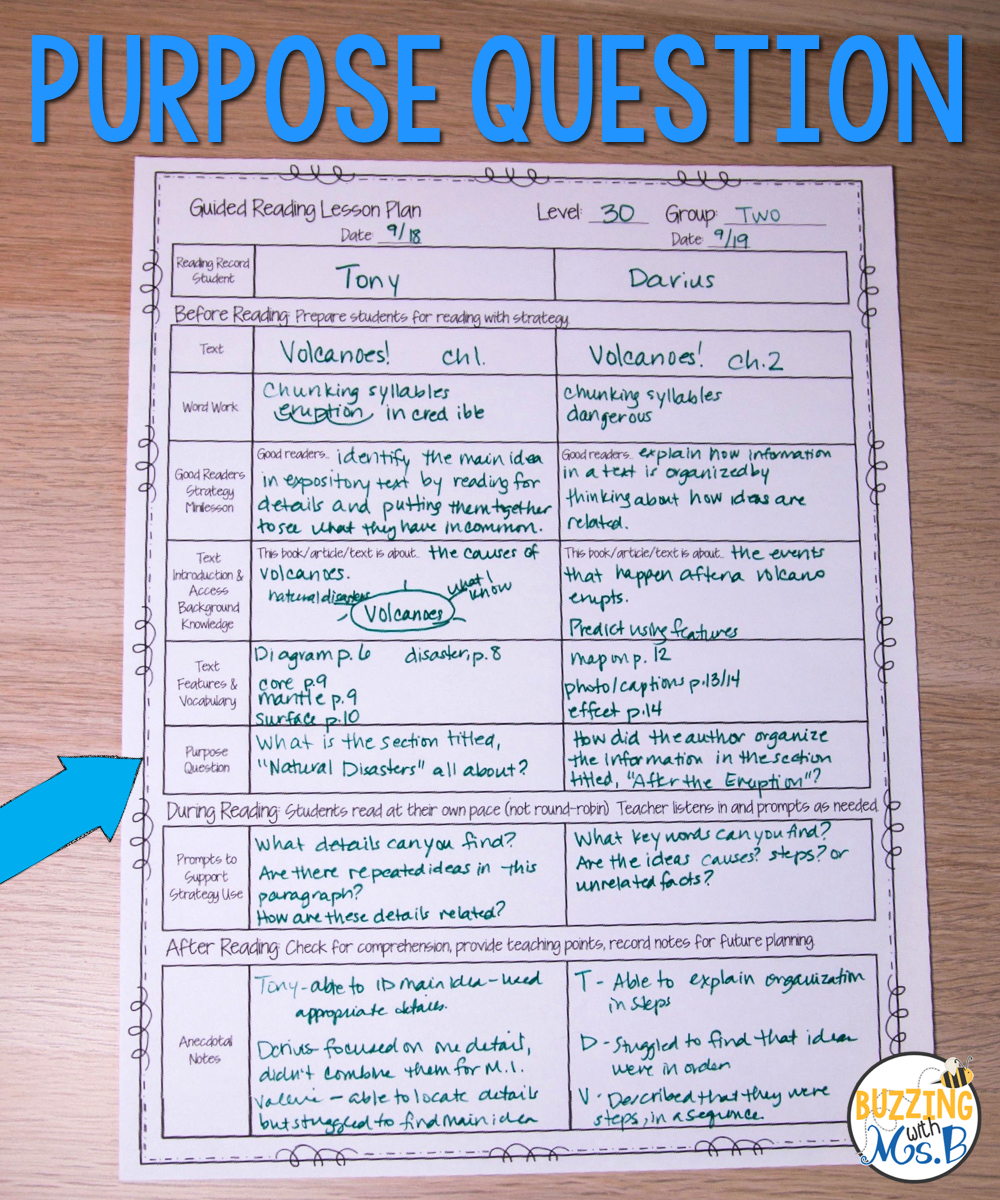 PURPOSE QUESTION
Guided Reading Lesson Plan Level: 30 Group: Two
Date: 9/18 Date: 9/19
Reading Record Student
Tony
Darius
Before Reading: Prepare students for reading with strategy
Text
Volcanoes! ch1.
Volcanoes! ch.2
Word Work
Chunking syllables
eruption in cred ible
chunking syllables
dangerous
Good Readers
Strategy
Minilesson
Good readers... identify the main idea
in expository text by reading for
details and putting them together
to see what they have in common.
Good readers... explain how information
in a text is organized by
thinking about how ideas are
related.
Text
Introduction &
Access
Background
Knowledge
This book/article/text is about... the causes of
volcanoes.
natural disasters
Volcanoes
what I
know
This book/article/text is about... the events
that happen after a volcano
erupts.
Predict using features
Text
Features &
Vocabulary
Diagram p. 6 disaster, p. 8
core p.9
mantle p.9
surface p.10
map on p. 12
photo/captions p.13/14
effect p.14
Purpose
Question
What is the section titled,
"Natural Disasters" all about?
How did the author organize
the information in the section
titled, "After the Eruption"?
During Reading: Students read at their own pace (not round-robin) Teacher listens in and prompts as needed
Prompts to
Support
Strategy Use
What details can you find?
Are there repeated ideas in this
paragraph?
How are these details related?
What key words can you find?
Are the ideas causes? steps? or
unrelated facts?
After Reading: Check for comprehension, provide teaching points, record notes for future planning
Anecdotal
Notes
Tony - able to ID main idea - used
appropriate details.
Darius - focused on one detail,
didn't combine them for M.I.
Valerie - able to locate details
but struggled to find main idea
T - Able to explain organization
in steps
D - Struggled to find that ideas
were in order
V - Described that they were
steps, in a sequence.
BUZZING
with
Ms.B